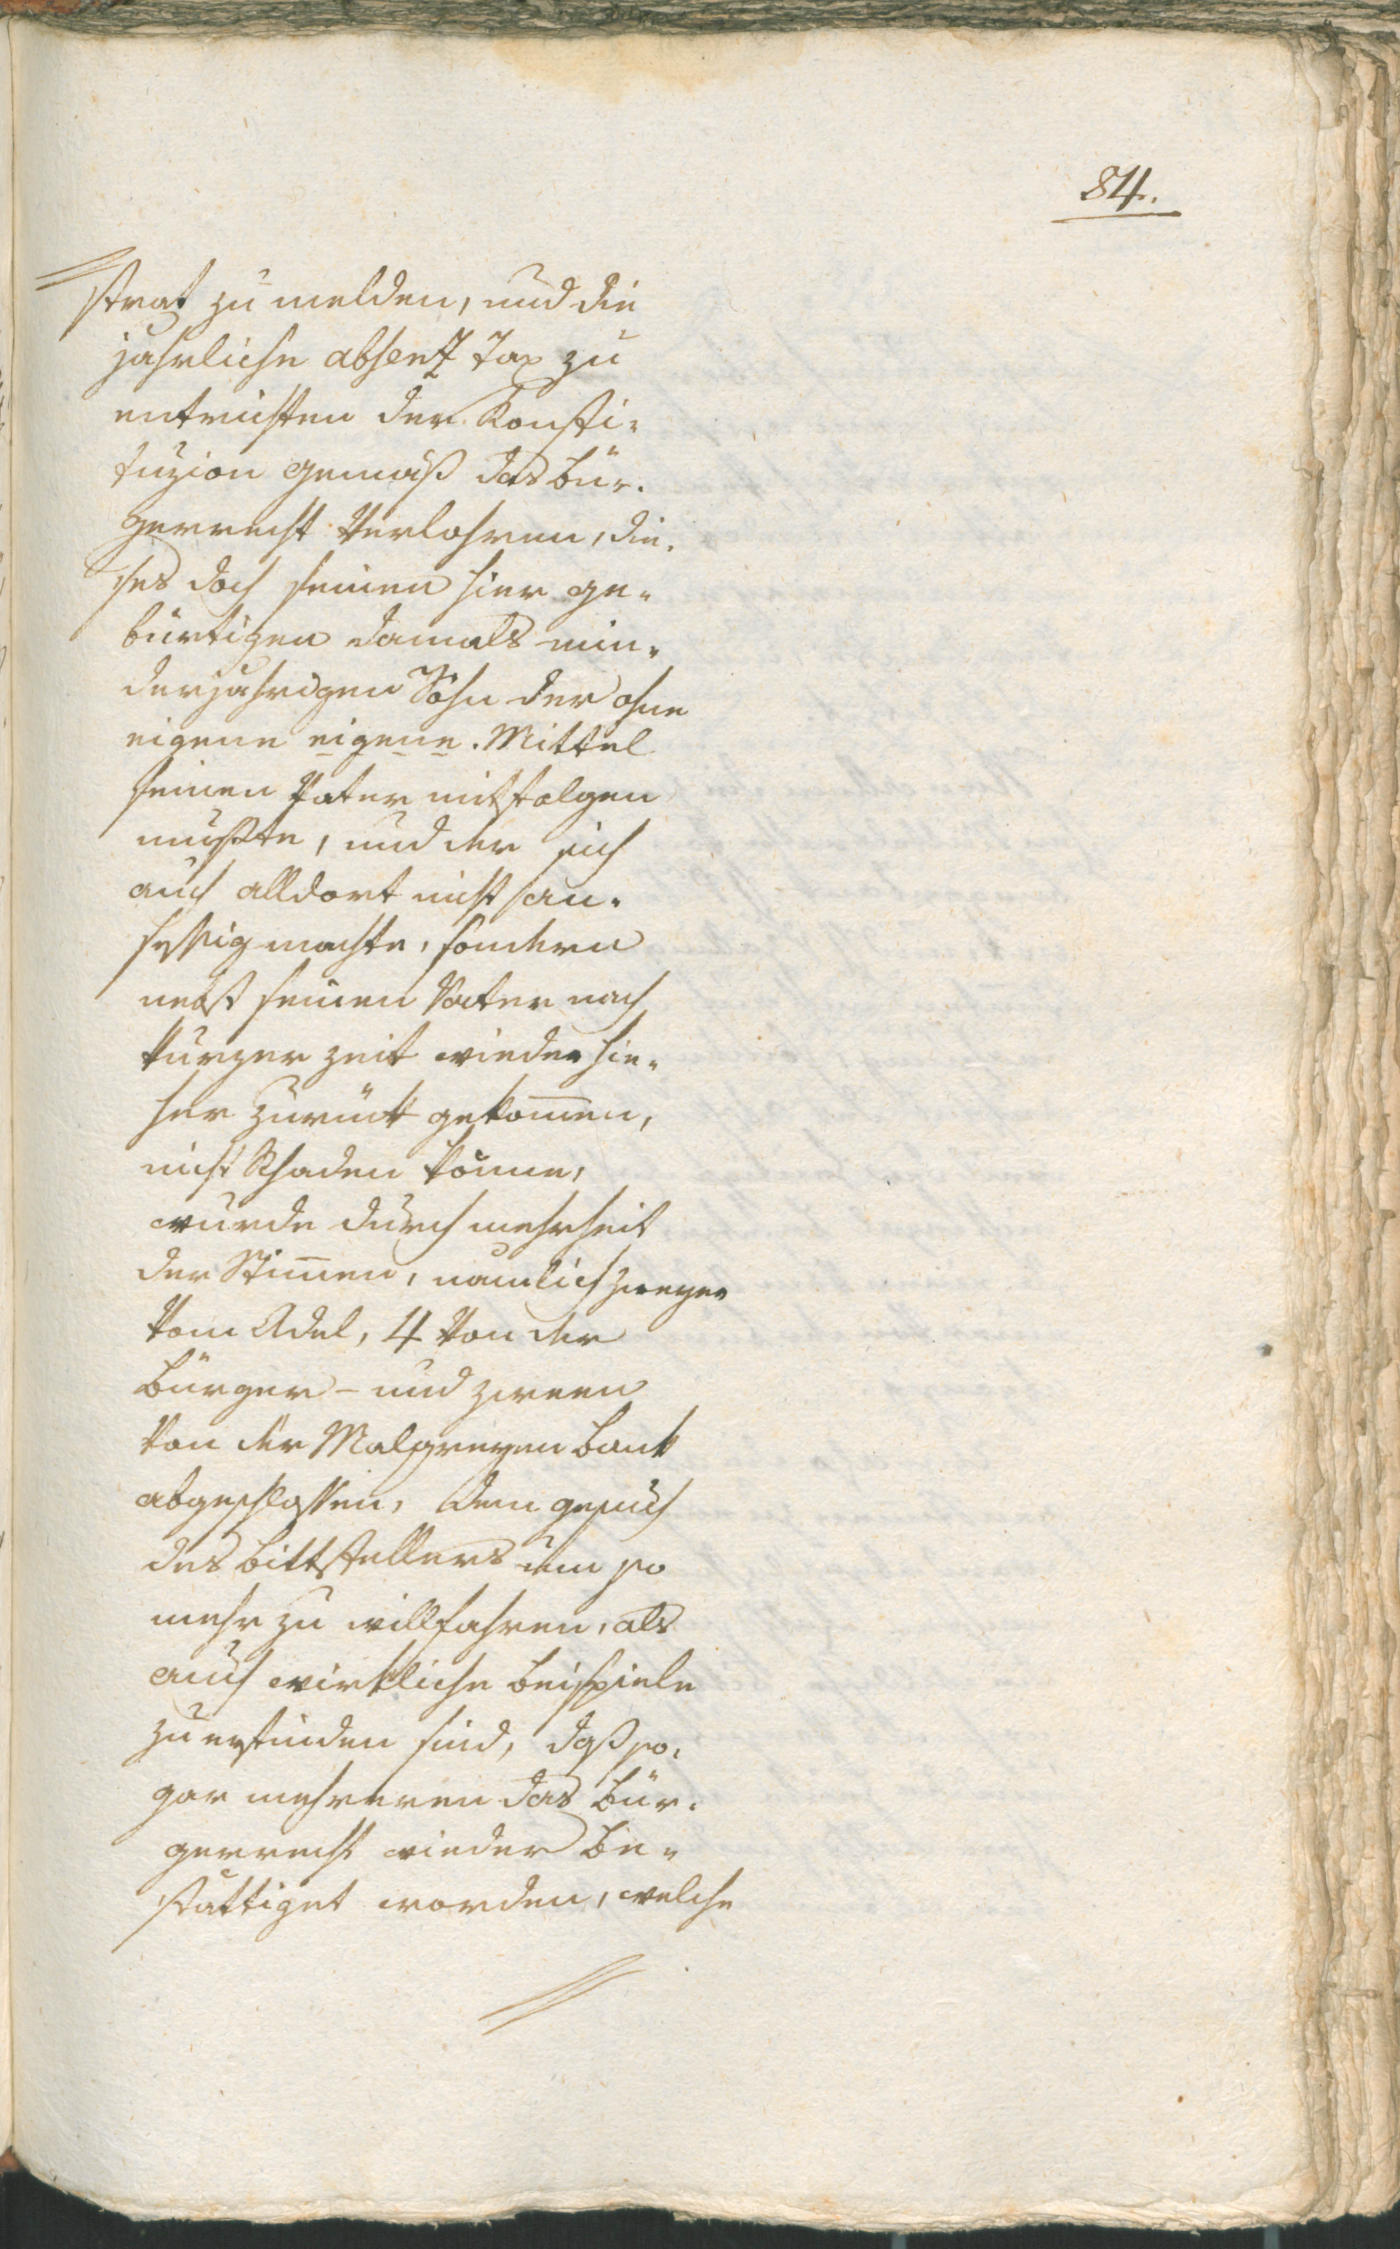 84.
strat zu melden, und die
jahrliche absenz Tax zu
entrichten der Konsti-
tuzion gemäß das bür-
gerrecht Verlohren, die-
ses doch seinen hier ge-
bürtigen damals min-
derjahrigen Sohn der ohne
eigene eigene. Mittel
seinen Vater mitfolgen
mußte, und der sich
auch alldort nicht an-
seßig machte, sondern
nebst seinen Vater nach
kurzer zeit wieder hie-
her zurück gekom̅en,
nicht Schaden könne,
wurde durch mehrheit
der Stim̅en, namlich zweyer
Vom Adel, 4 Von der
bürger- und zween
Von der Malgreyen bank
abgeschlossen, dem gesuch
des bittstellers um so
mehr zu willfahren, als
auch wirkliche beispiele
zu erfinden sind, daß so-
gar mehreren das bür-
gerrecht wieder be-
stattiget worden, welche